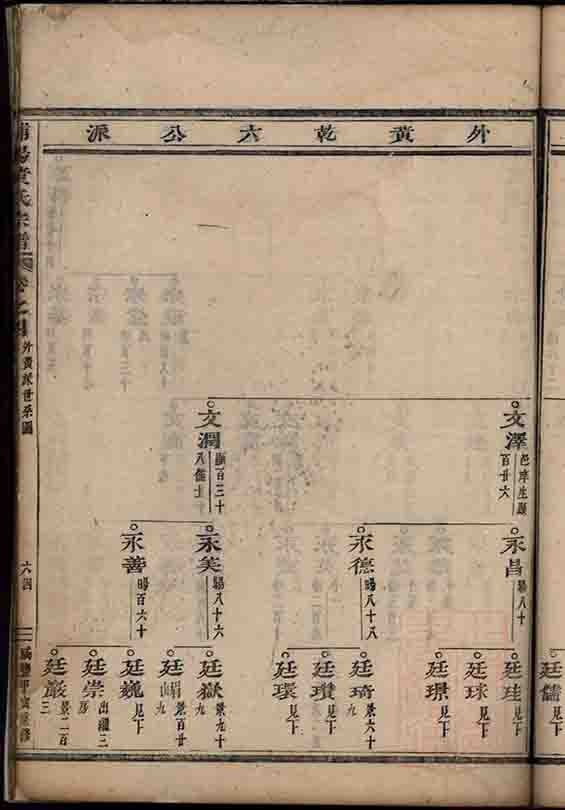 外黄乾六公派
文澤
邑庠生顯
百廿六
文澗
顯百三十
永昌
賜八十
永德
賜八十八
永美
賜八十六
永善
賜百六十
廷儒
見下
廷珪
見下
廷球
見下
廷瓚
見下
廷琦
景六十
九
廷瓚
見下
廷環
見下
廷嶽
景九十
九
景百廿
九
廷巍
見下
廷崇
出繼三
房
廷巖
景二百
三
黄氏宗譜
卷之四
外黄派世系圖
六四